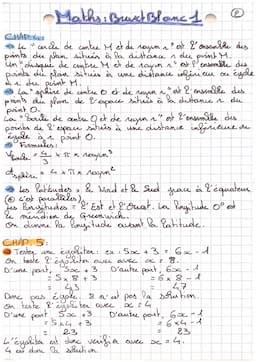 Maths : Brevet Blanc 1
CHAP.
Le "cercle de centre M et de rayon r" est l'ensemble des
points du plan situés à la distance r du point M.
Un "disque de centre M et de rayon r" est l'ensemble des
points du plan situés à une distance inférieure ou égale
à r du point M.
La "sphère de centre O et de rayon r" est l'ensemble des
points de l'espace situés à la distance r du
point O.
La "boule de centre O et de rayon r" est l'ensemble des
points de l'espace situés à une distance inférieure ou
égale à r point O.
Formules :
V boule = 4/3 × π × rayon³
A sphère = 4 × π × rayon²
Les latitudes = le Nord et le Sud grace à l'équateur
(c'est parallèles).
Les longitudes = l'Est et l'Ouest. La longitude 0° est
le méridien de Greenwich.
On donne la longitude avant la latitude.
CHAP. 5 :
Tester une égalité : ex : 5x + 3 = 6x - 1
On teste l'égalité avec x = 8.
D'une part, 5x + 3 D'autre part, 6x - 1
= 5 × 8 + 3 = 6×8 - 1
= 43 = 47
Donc pas égale. 8 n'est pas la solution.
On teste l'égalité avec x = 4
D'une part, 5x + 3. D'autre part, 6x - 1
= 5×4 + 3 = 6×4 - 1
= 23 = 23
L'égalité est donc vérifiée avec x = 4.
4 est donc la solution.